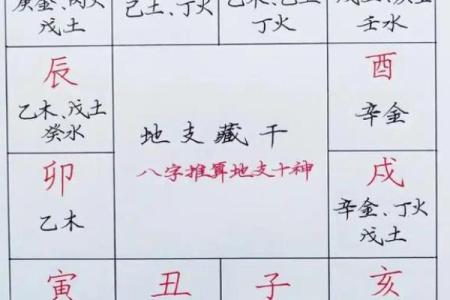 庚金、丙火
戊土
己土、丁火
丁火
壬水
辰
乙木、戊土
癸水
地支藏干
八字推算地支十神
酉
辛金
卯
乙木
戌
辛金、丁火
戊土
寅
丑
子
亥